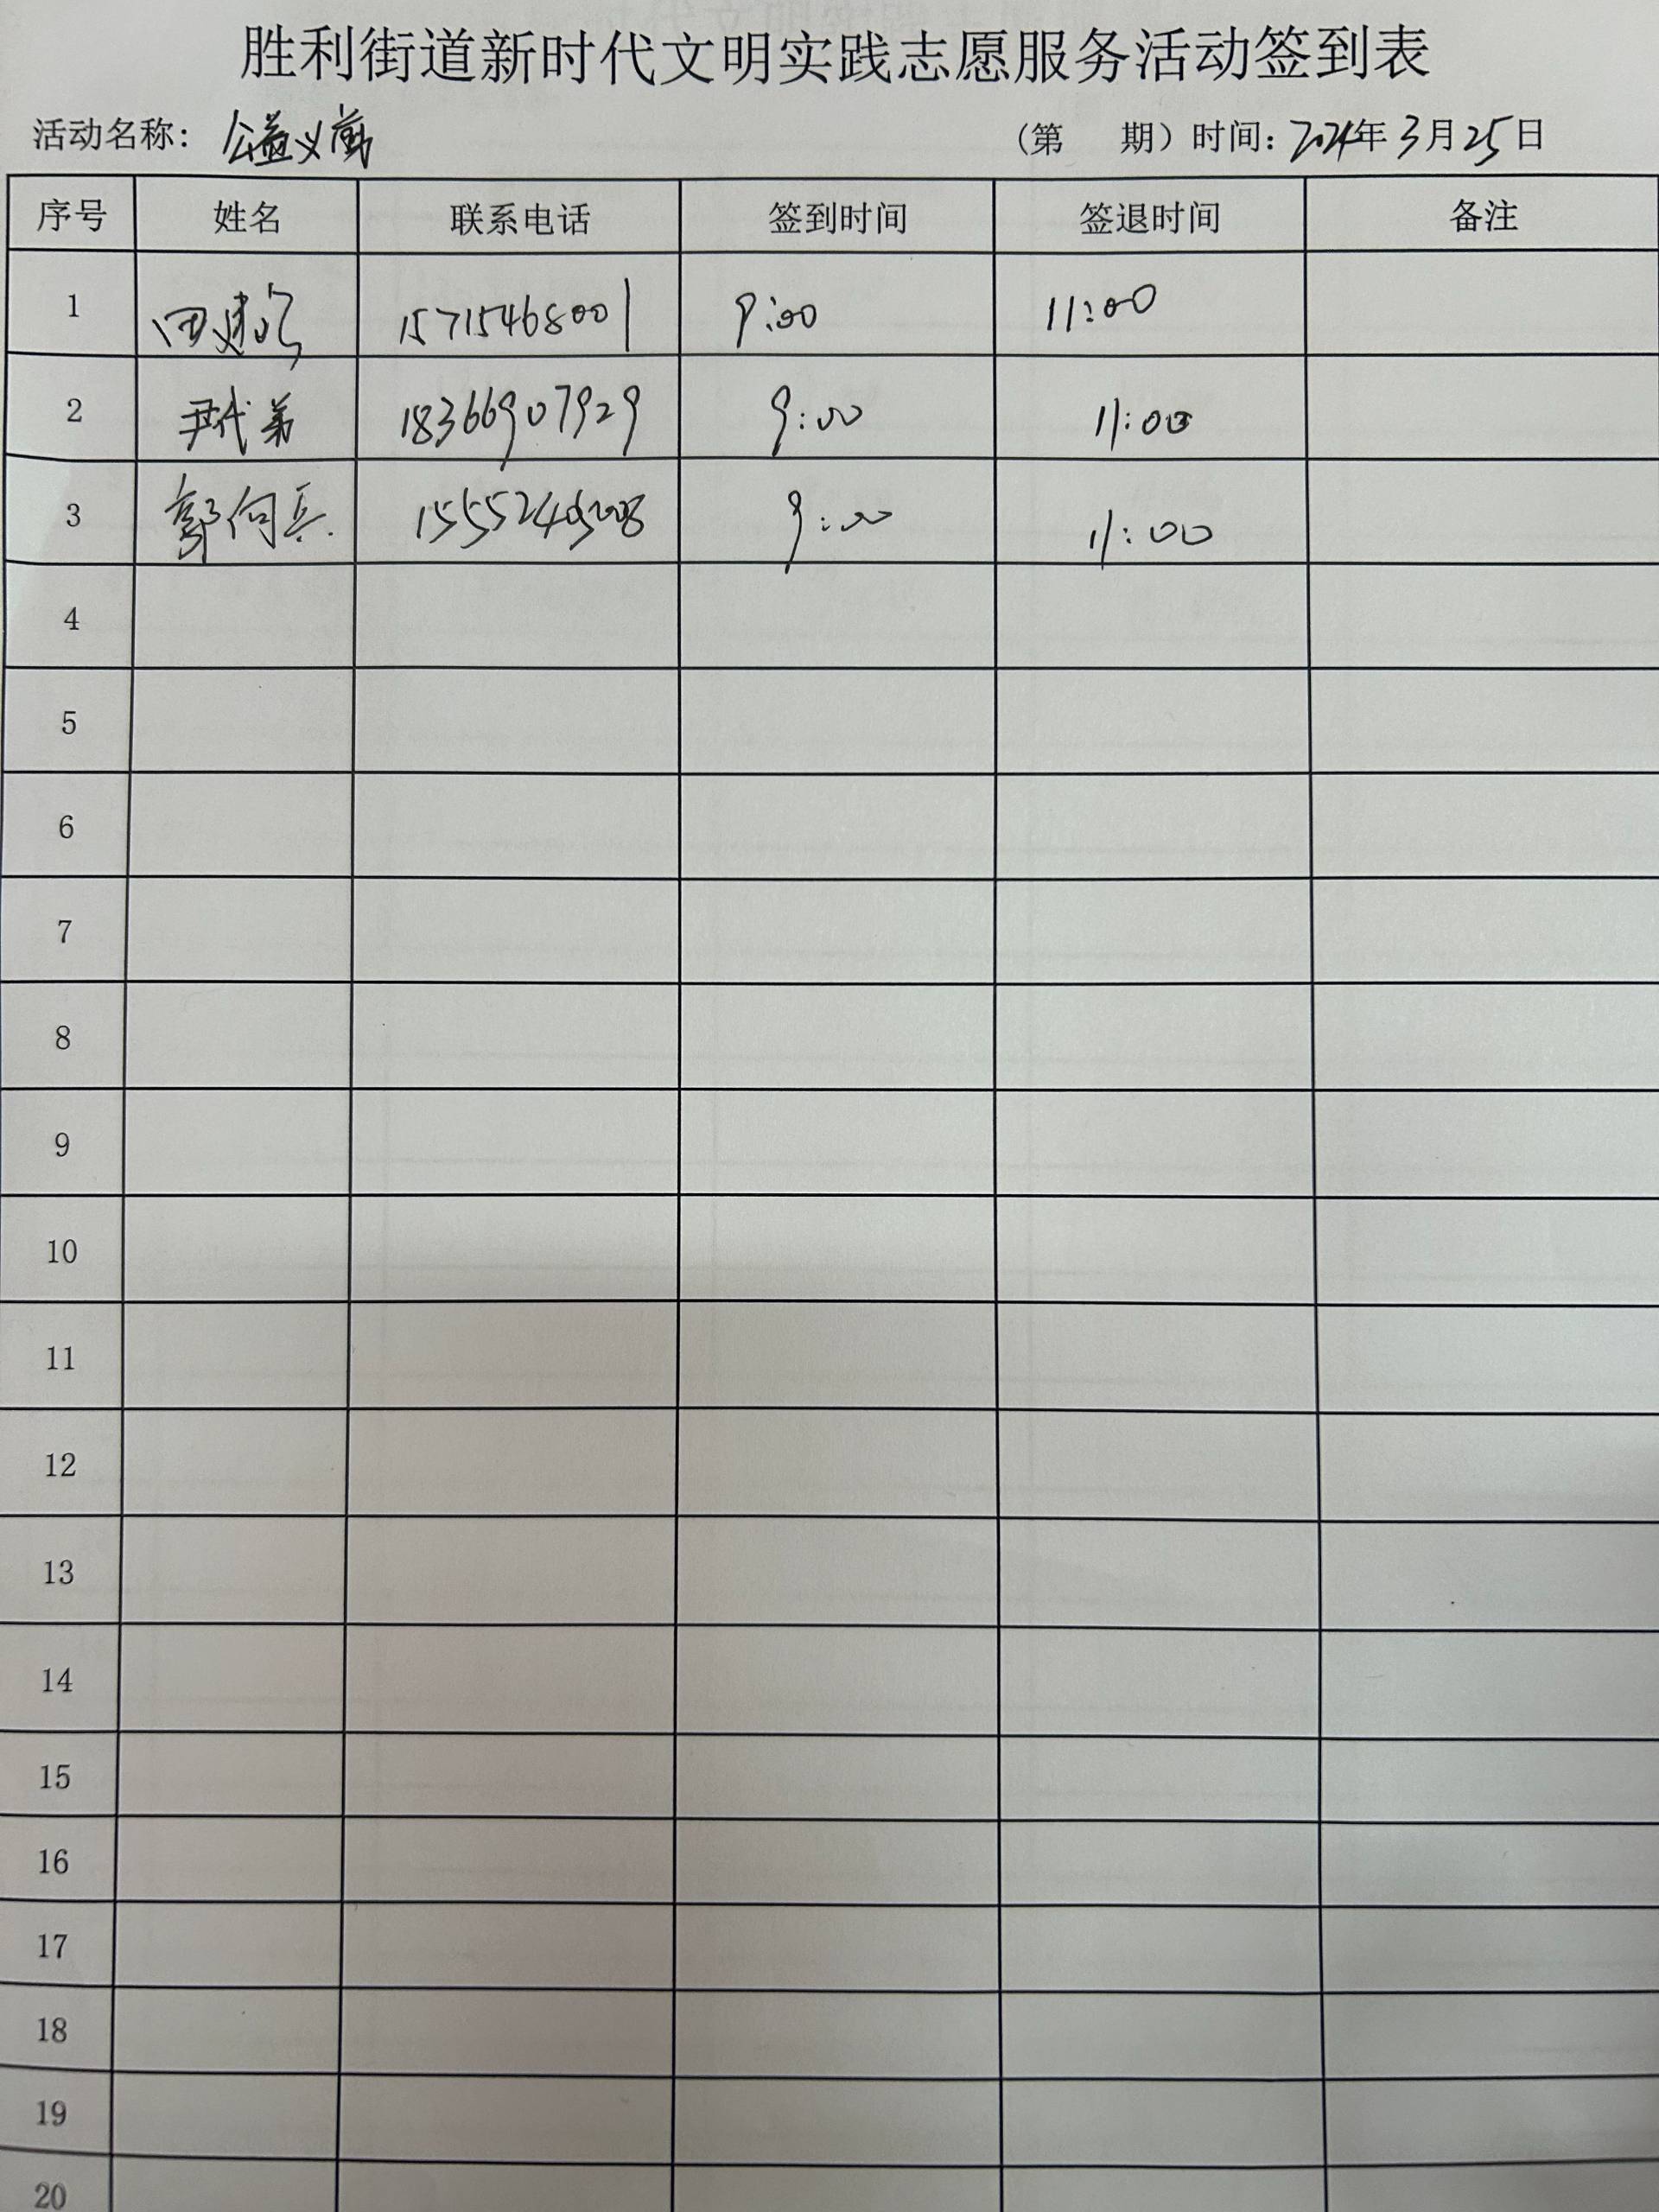 胜利街道新时代文明实践志愿服务活动签到表
活动名称：公益义剪 （第 期）时间：2024年3月25日
序号 姓名 联系电话 签到时间 签退时间 备注
1 15715468001 9:00 11:00
2 尹代弟 18366907929 9:00 11:00
3 郭向兵 9:00 11:00
4
5
6
7
8
9
10
11
12
13
14
15
16
17
18
19
20